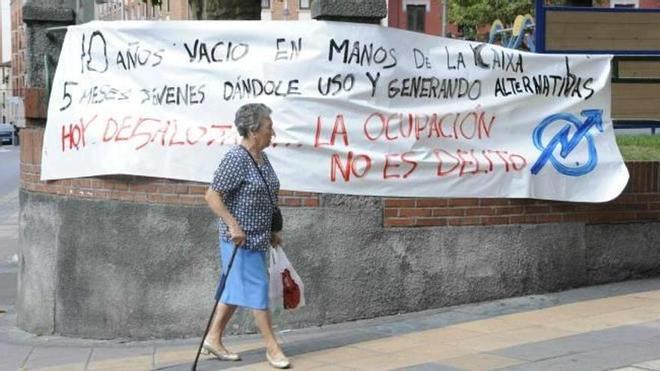 10 AÑOS VACIO EN MANOS DE LA KAIXA
5 MESES JÓVENES DÁNDOLE USO Y GENERANDO ALTERNATIVAS
HOY DESALOJ... LA OCUPACIÓN
NO ES DELITO